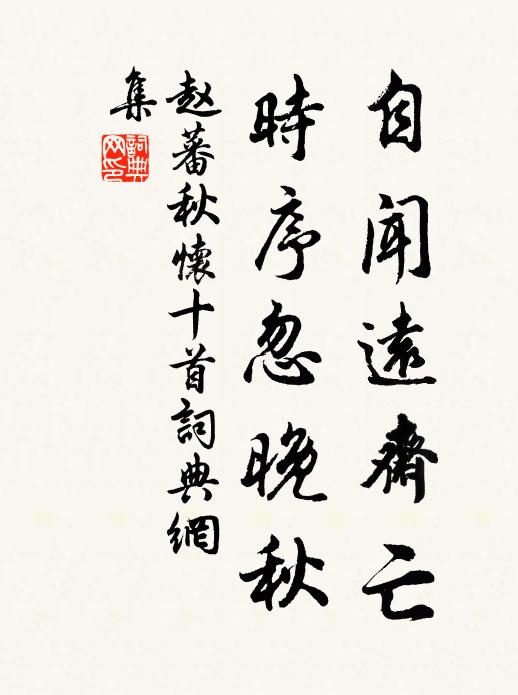 自聞遠齋亡
時序忽晚秋
赵蕃秋懷十首詞典網
集
詞典
网印